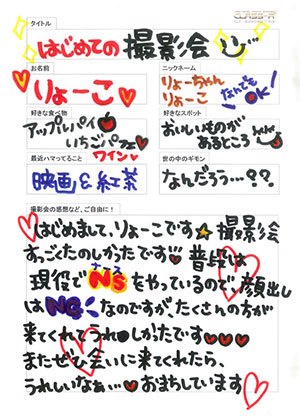 CLASS-A
タイトル
はじめての撮影会
お名前
りょーこ
ニックネーム
りょーちゃん
りょーこ
なんでも
OK!
好きな食べ物
アップルパイ
いちごパフェ
ワイン
好きなスポット
おいしいものが
あるところ
最近ハマってること
映画&紅茶
世の中のギモン
なんだろう…??
撮影会の感想など、ご自由に!
はじめまして、りょーこです★撮影会
すっごくたのしかったです 普段は
ナース
現役でNSをやっているので、顔出し
はNGなのですが、たくさんの方が
来てくれてうれしかったです
またぜひ会いに来てくれたら、
うれしいなぁ…おまちしています